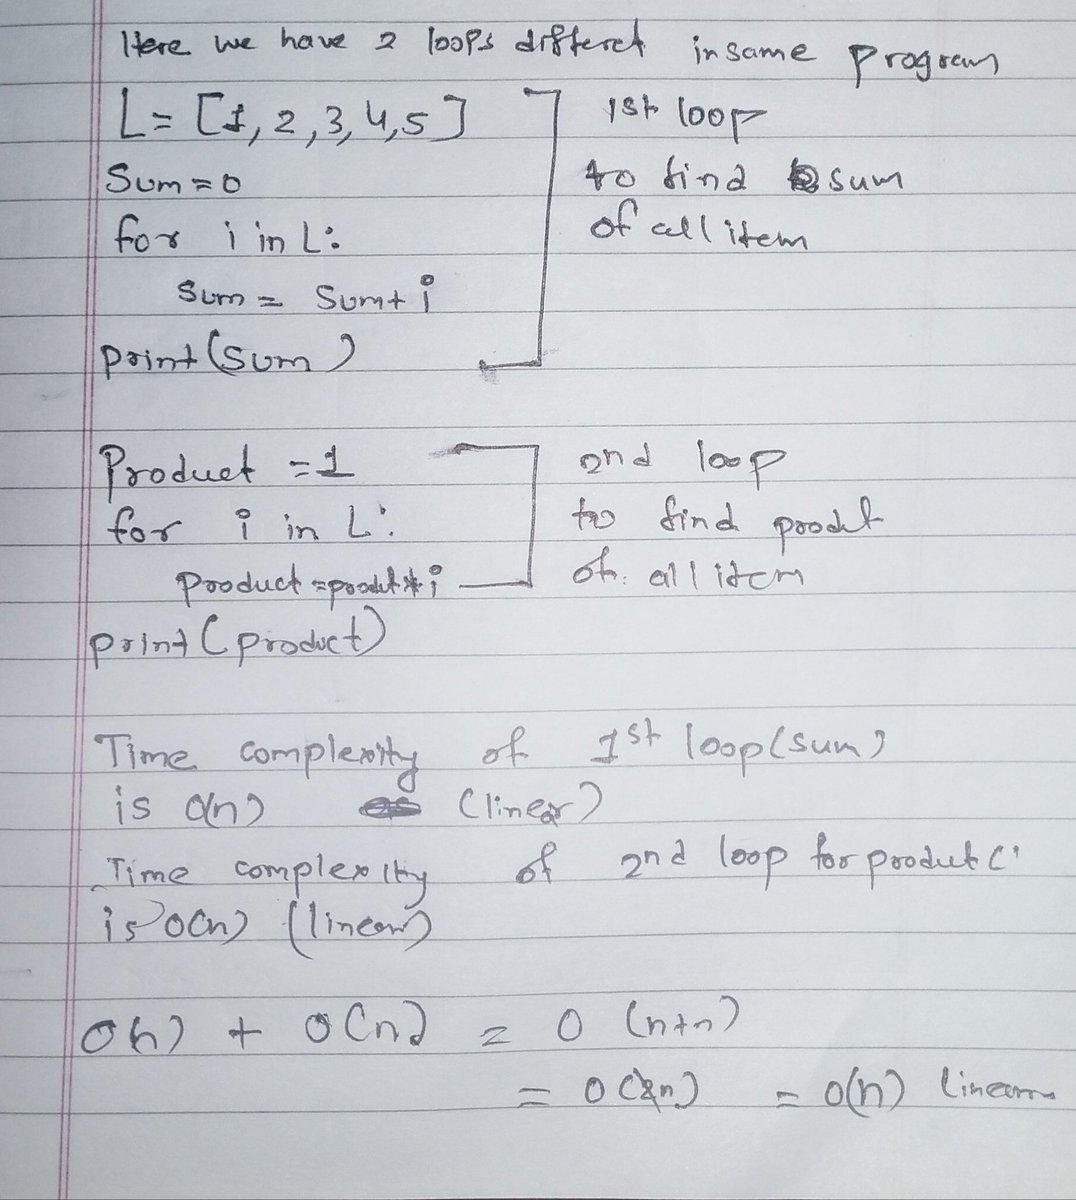 Here we have 2 loops differet in same program
L = [1, 2, 3, 4, 5] 1st loop
Sum = 0 to find sum
for i in L: of all item
sum = sum + i
print (sum)
Product = 1 2nd loop
for i in L: to find produt
product = produt * i of all item
print (product)
Time complexity of 1st loop (sum)
is O(n) (linear)
Time complexity of 2nd loop for product
is O(n) (linear)
O(n) + O(n) = O (n+n)
= O(2n) = O(n) linear